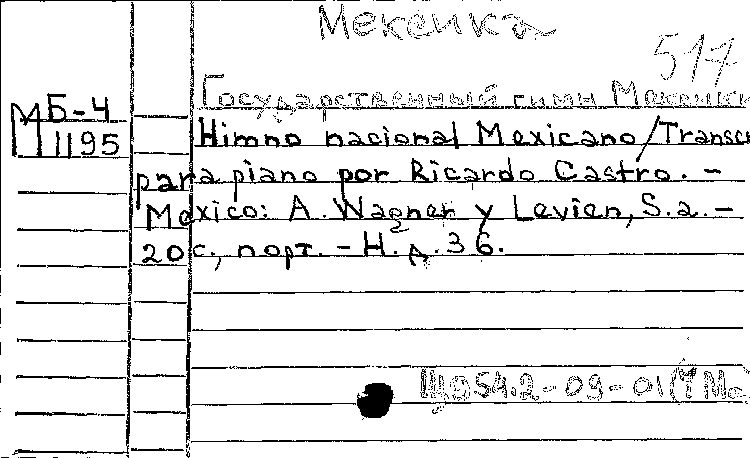 Мексика
517
Государственный гимн Мексики
МБ-4
1195
Himno nacional Mexicano / Transcr
para piano por Ricardo Castro. –
Mexico: A. Wagner y Levien, S.a. –
20 с., порт. – Н.д. 36.
Щ954.2-09-01(7Ме